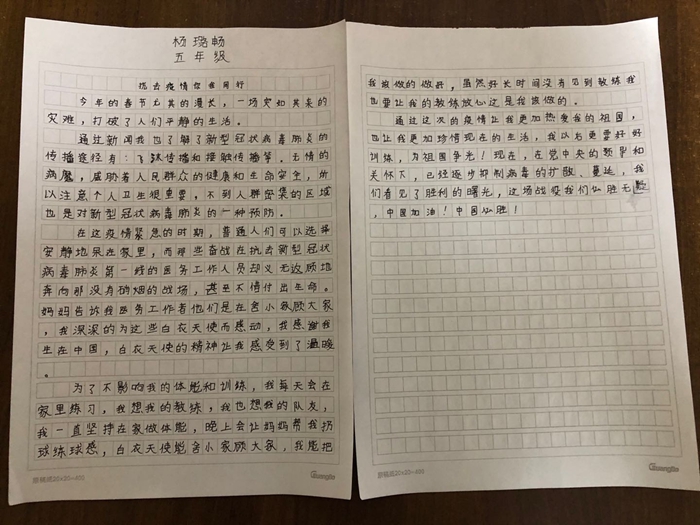 杨璐畅
五年级
抗击疫情你我同行
今年的春节尤其的漫长，一场突如其来的
灾难，打破了人们平静的生活。
通过新闻我也了解了新型冠状病毒肺炎的
传播途径有：飞沫传播和接触传播等。无情的
病魔，威胁着人民群众的健康和生命安全，所
以注意个人卫生很重要，不到人群密集的区域
也是对新型冠状病毒肺炎的一种预防。
在这疫情紧急的时期，普通人们可以选择
安静地呆在家里，而那些奋战在抗击新型冠状
病毒肺炎第一线的医务工作人员却义无返顾地
奔向那没有硝烟的战场，甚至不惜付出生命。
妈妈告诉我医务工作者他们是在舍小家顾大家
，我深深的为这些白衣天使而感动，我感谢我
生在中国，白衣天使的精神让我感受到了温暖
。
为了不影响我的体能和训练，我每天会在
家里练习，我想我的教练，我也想我的队友，
我一直坚持在家做体能，晚上会让妈妈帮我扔
球练球感，白衣天使能舍小家顾大家，我能把
原稿纸20×20=400
Guangbo
我该做的做好，虽然好长时间没有见到教练我
也要让我的教练放心这是我该做的。
通过这次的疫情让我更加热爱我的祖国，
也让我更加珍惜现在的生活，我以后更要好好
训练，为祖国争光！现在，在党中央的领导和
关怀下，已经逐步抑制病毒的扩散、蔓延，我
们看见了胜利的曙光，这场战役我们必胜无疑
，中国加油！中国必胜！
原稿纸20×20=400
Guangbo